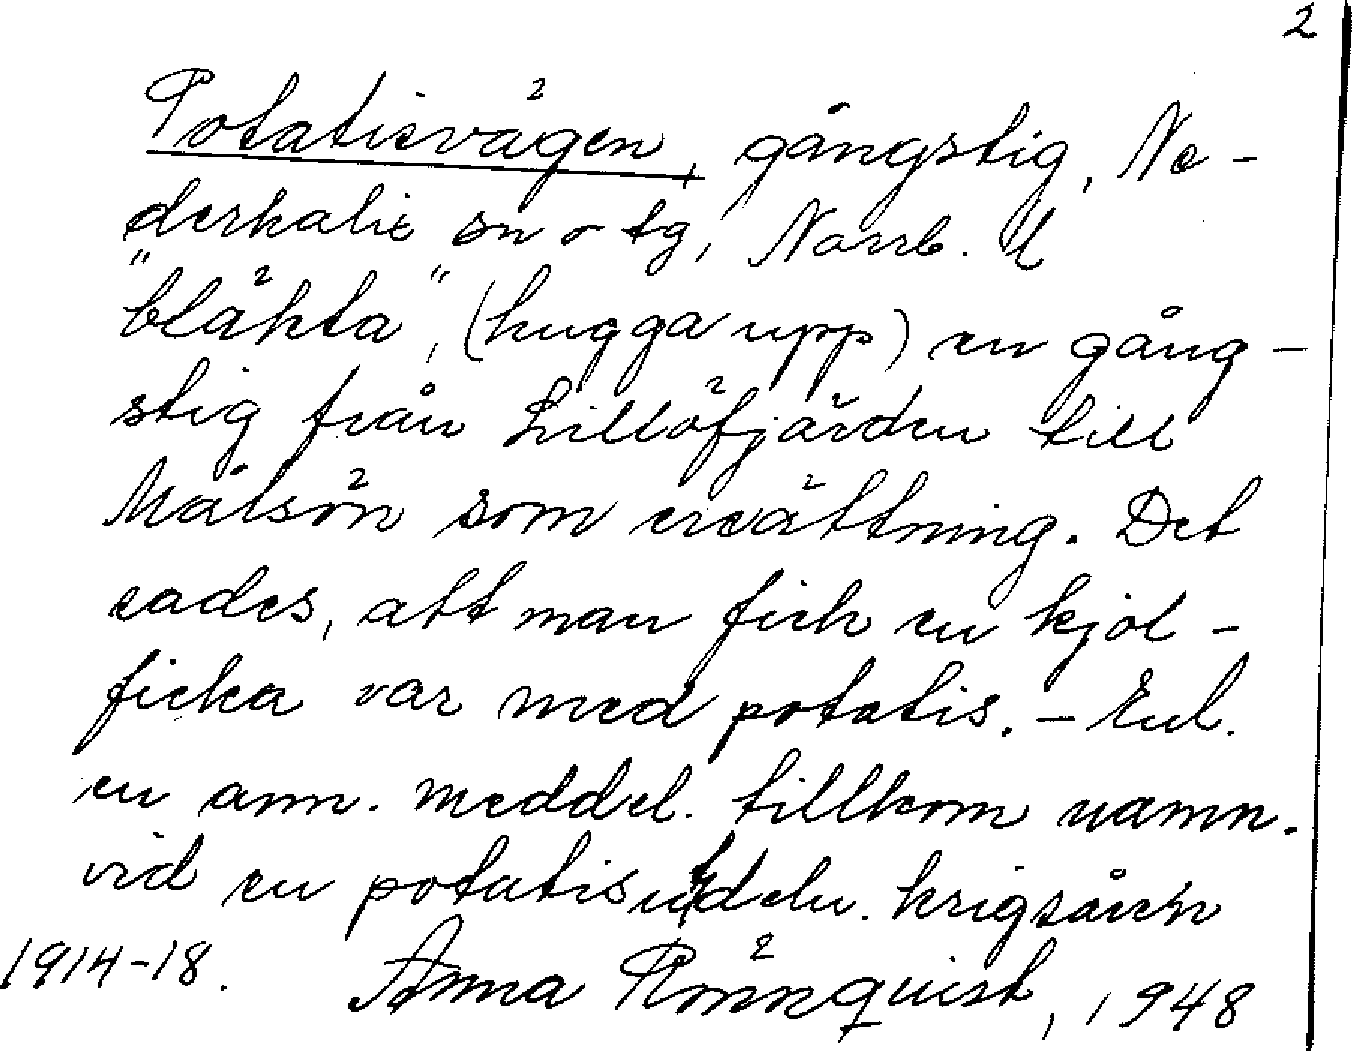 2
Potatisvägen, gångstig, Ne-
derkalix sn o tg, Norrb. l
"bläkta", (hugga upp) en gång-
stig från Lillöfjärden till
Målsön som ersättning. Det
sades, att man fick en kjol-
ficka var med potatis. - Enl.
en ann. meddel. tillkom namn.
vid en potatisutdeln. krigsåren
1914-18. Anna Rönnquist, 1948